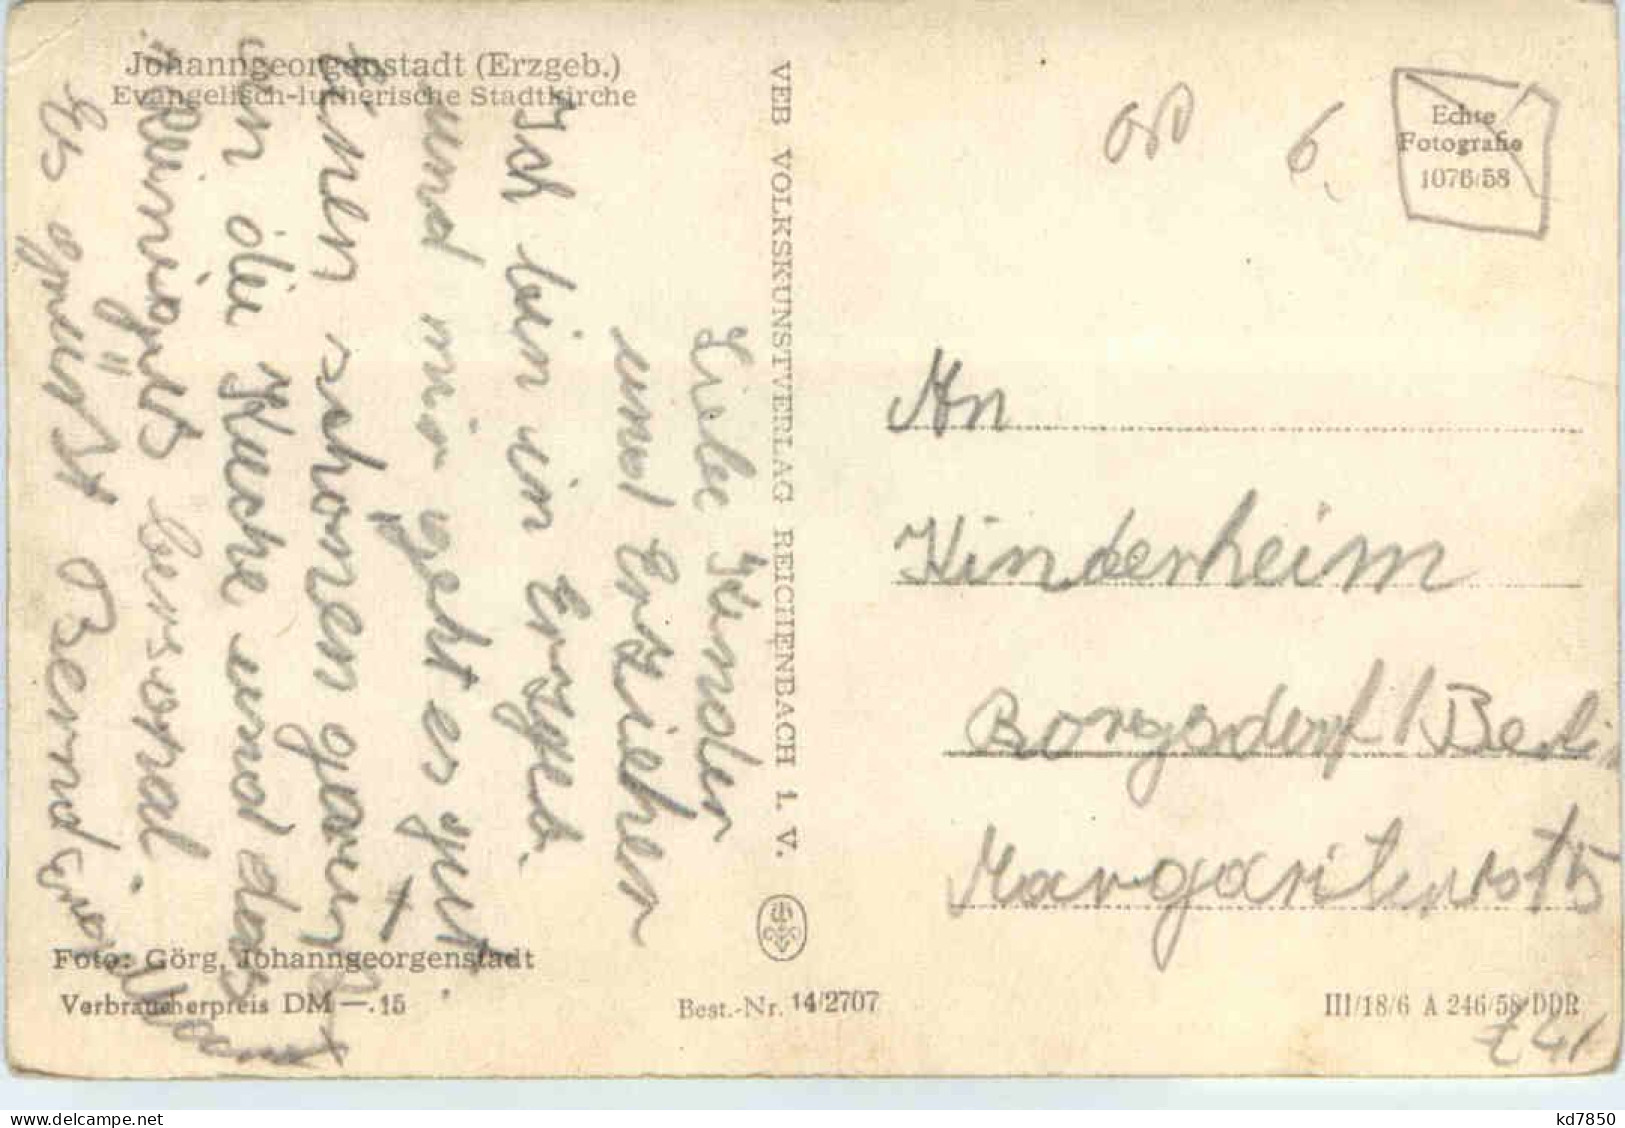 Johanngeorgenstadt (Erzgeb.)
Evangelisch-lutherische Stadtkirche
Liebe Kinder
und Erzieher
Ich bin in Erzgeb.
und mir geht es gut
einen schonen gruß
an die Küche und das
Reinigüngs bersonal.
Es grüst Bernd
Foto: Görg, Johanngeorgenstadt
Verbraucherpreis DM —.15
Best.-Nr. 14/2707
VEB VOLKSKUNSTVERLAG REICHENBACH I. V.
Echte
Fotografie
1076/58
6
An
Kinderheim
Borgsdorf / Berlin
Margaritenst 5
III/18/6 A 246/58 DDR
kd7850